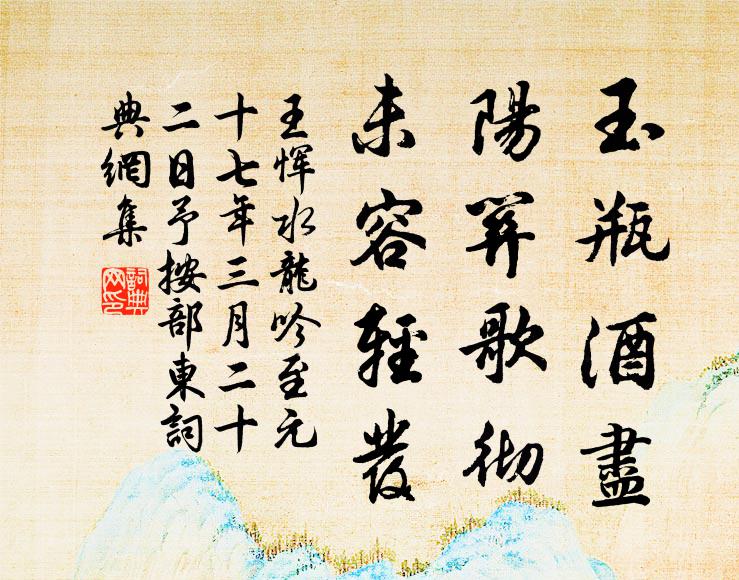 玉瓶酒盡
陽關歌徹
未容輕發
王惲水龍吟至元
十七年三月二十
二日予按部東詞
典網集
詞典
网印